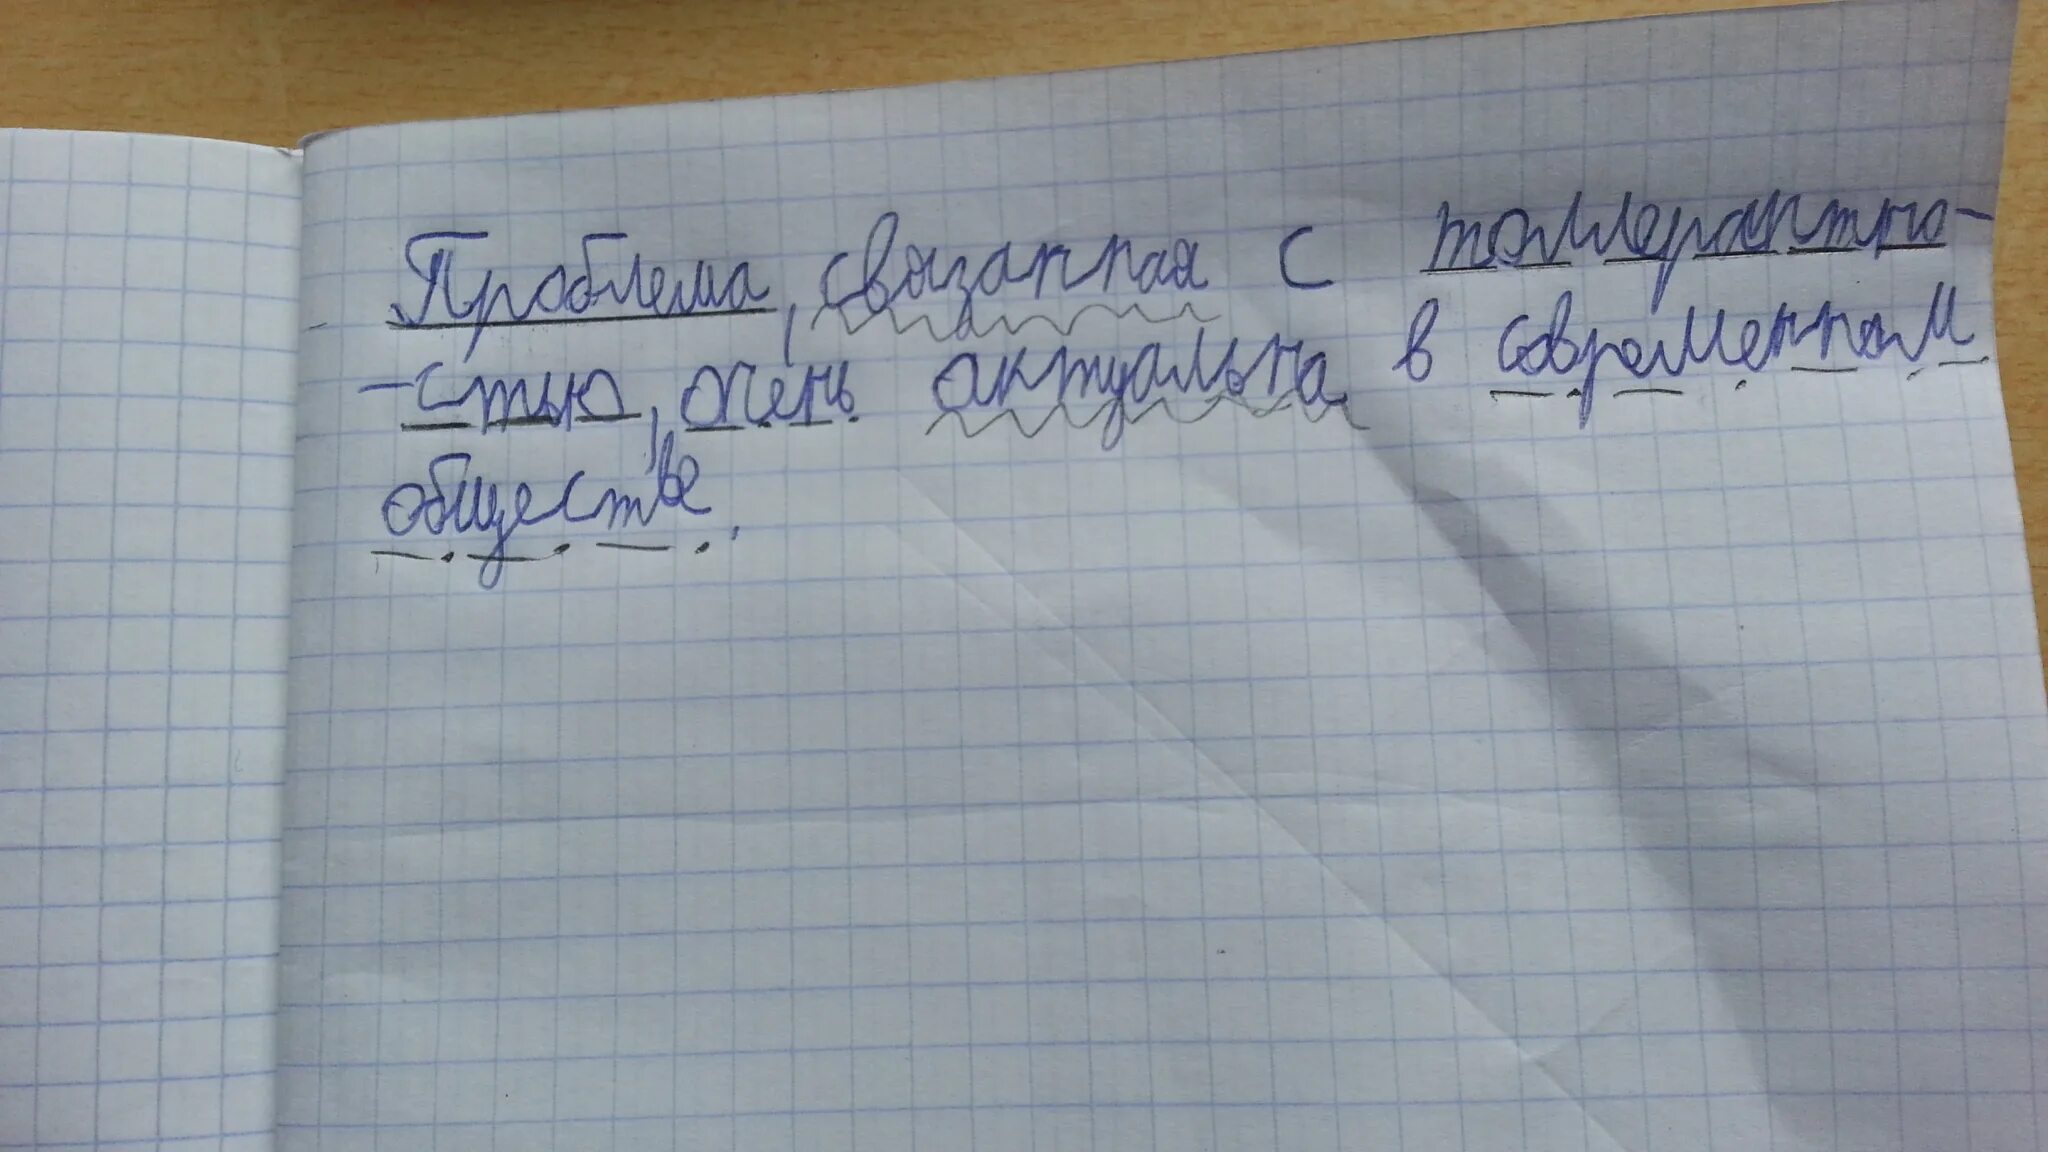 Проблема, связанная с толлерантно-
-стью, очень актуальна в современном
обществе.